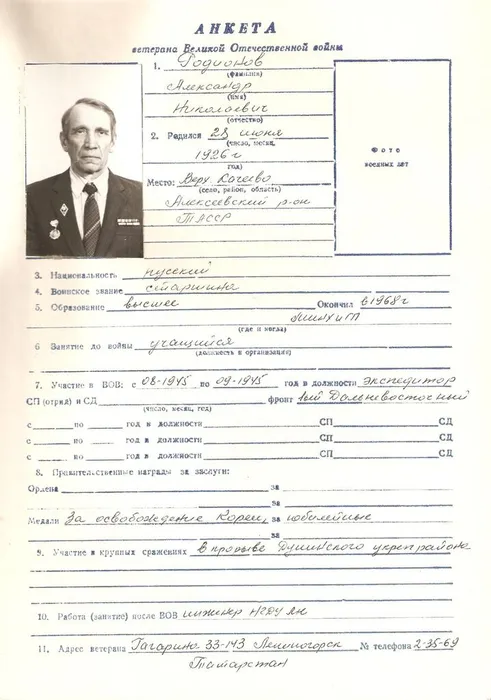 АНКЕТА
ветерана Великой Отечественной войны
1. Родионов
(фамилия)
Александр
(имя)
Николаевич
(отчество)
2. Родился 28 июня
(число, месяц,
1926 г
год)
Место: Верх. Качеево
(село, район, область)
Алексеевский р-он
ТАССР
Фото
военных лет
3. Национальность русский
4. Воинское звание старшина
5. Образование высшее Окончил в 1968 г
МИНХ и ГП
(где и когда)
6 Занятие до войны учащийся
(должность и организация)
7. Участие в ВОВ: с 08-1945 по 09-1945 год в должности экспедитор
СП (отряд) и СД фронт 1ый Дальневосточный
(число, месяц, год)
с по год в должности СП СД
с по год в должности СП СД
с по год в должности СП СД
8. Правительственные награды за заслуги:
Ордена за
за
Медали За освобождение Кореи, за юбилейные
за
9. Участие в крупных сражениях в прорыве укрепрайона
10. Работа (занятие) после ВОВ инженер НГДУ
11. Адрес ветерана Гагарина 33-143 Лениногорск № телефона 2-35-69
Татарстан